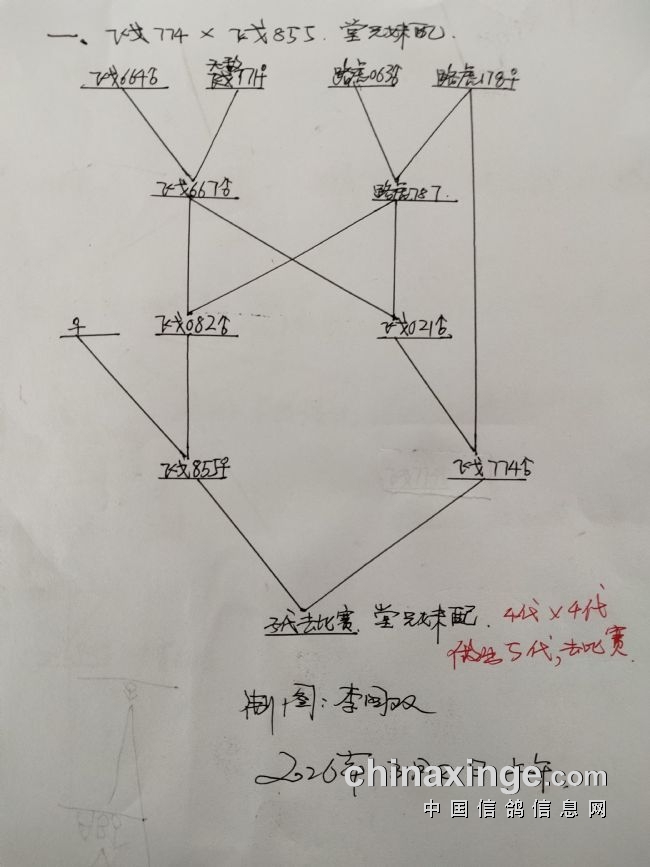 一、飞戈774×飞戈855.堂兄妹配.
飞戈664♂ 971♀ 路虎063♂ 路虎178♀
飞戈667♂ 路虎787.
♀ 飞戈082♂ 飞戈021♂
飞戈855♀ 飞戈774♂
子代去比赛.堂兄妹配. 4代×4代
5代,去比赛.
制图:李国双
2026年
chinaxinge.com
中国信鸽信息网